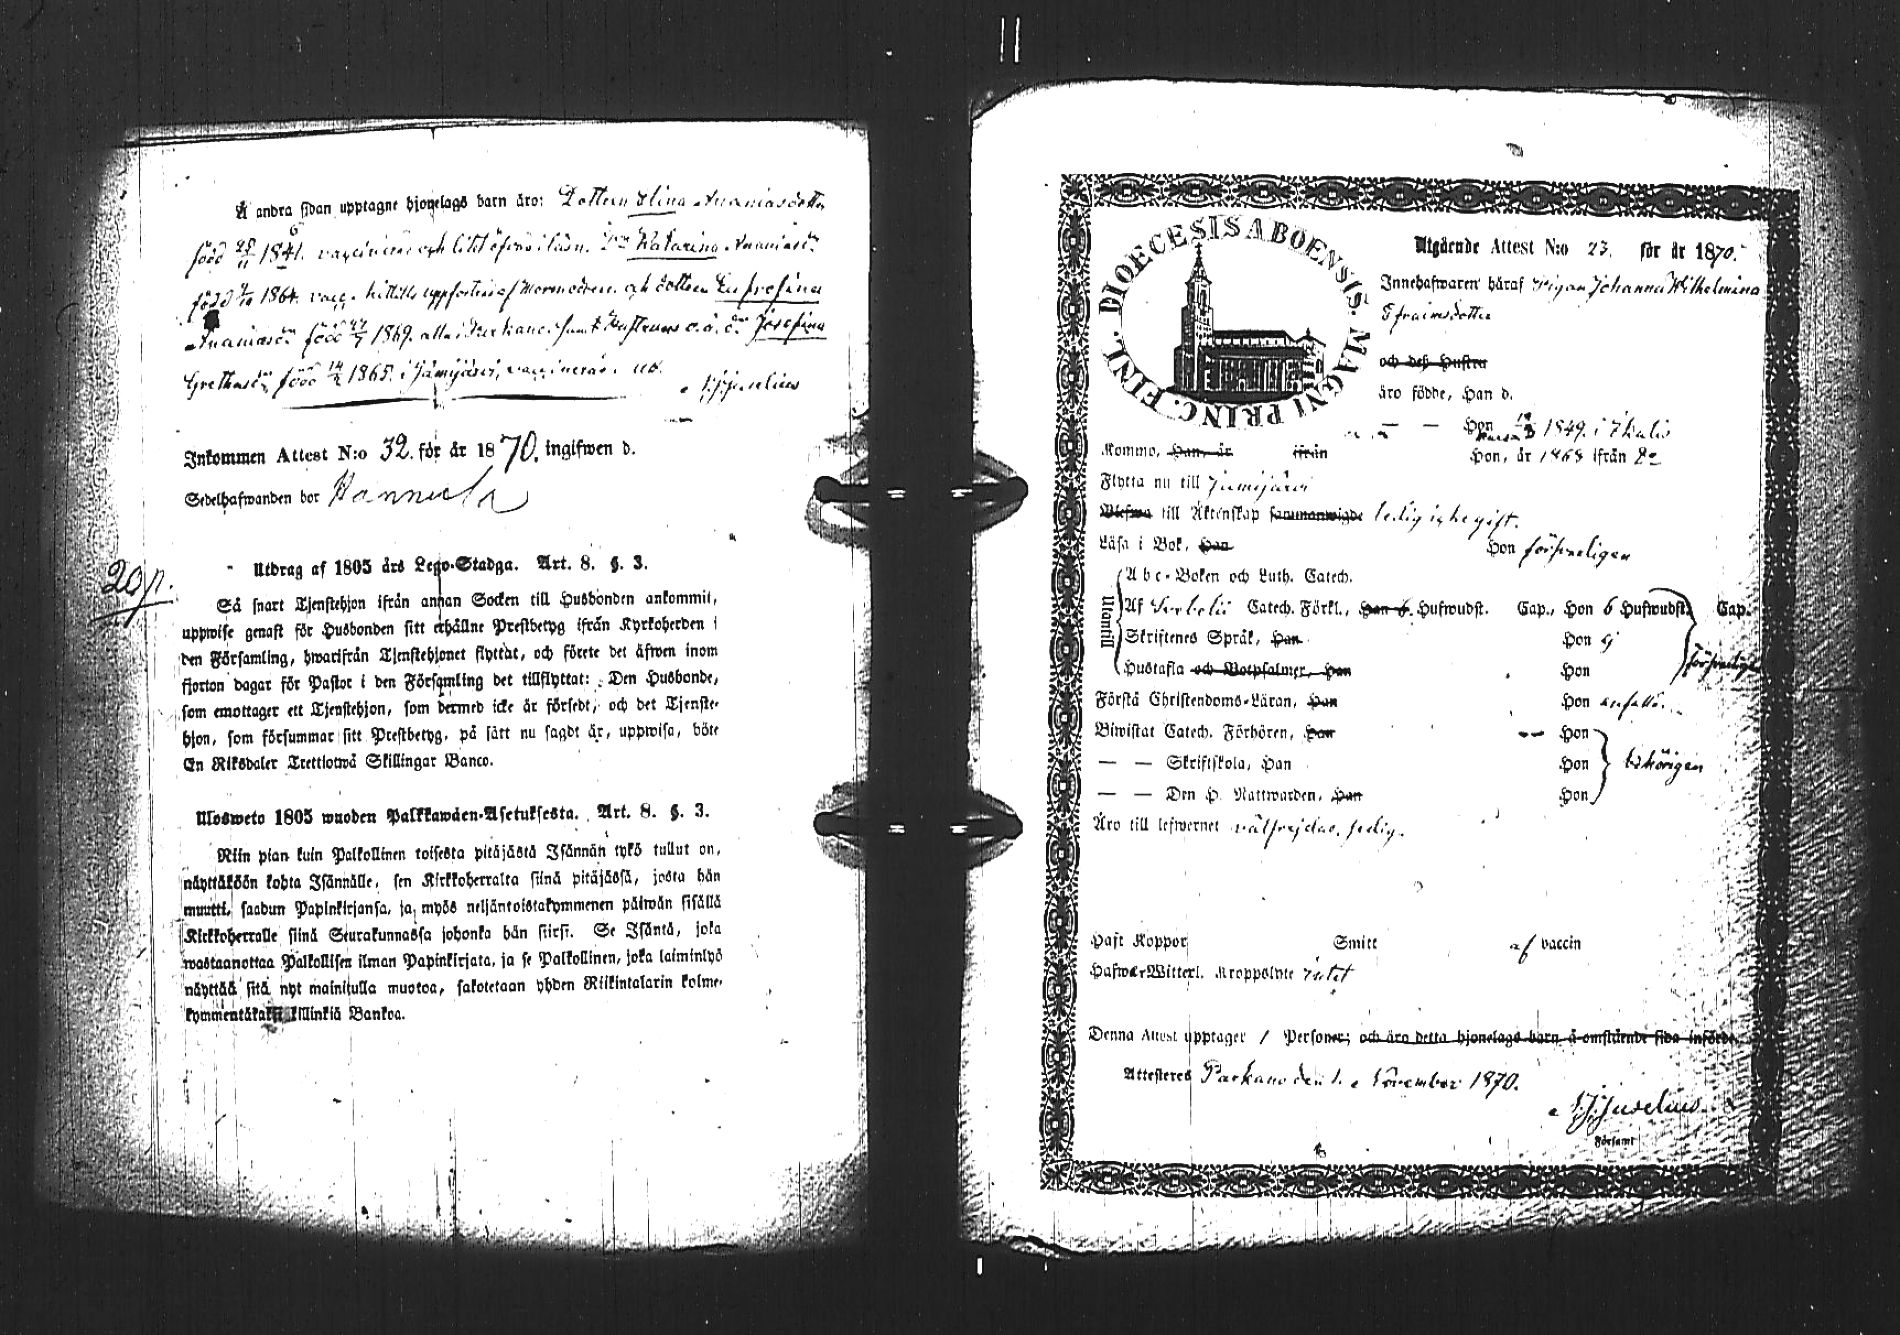 Å andra sidan upptagne hjonelags barn äro: Dottern Elina Ananiasdotter
född 25/11 1861. vaccinerad och Katarina Ananiasdr
född 1864. vacc. hittills uppfostrad af Mormodren och dottern Eufrosina
Ananiasdr född 1869. alla i Parkano. samt Josefina
Grethasdr född 14/2 1865. i Jämijärvi, vaccinerad.
Juselius
Inkommen Attest N:o 32. för år 1870. ingifwen d.
Sedelhafwanden bor Hannula
20 p.
Utdrag af 1805 års Lego-Stadga. Art. 8. §. 3.
Så snart Tjenstehjon ifrån annan Socken till Husbonden ankommit,
uppwise genast för Husbonden sitt erhållne Prestbetyg ifrån Kyrkoherden i
den Församling, hwarifrån Tjenstehjonet flyttat, och förete det äfwen inom
fjorton dagar för Pastor i den Församling det tillflyttat: Den Husbonde,
som emottager ett Tjenstehjon, som dermed icke är försedt, och det Tjenste-
hjon, som försummar sitt Prestbetyg, på sätt nu sagdt är, uppwisa, böte
En Riksdaler Trettiotwå Skillingar Banco.
Ulosweto 1805 wuoden Palkkawäen-Asetuksesta. Art. 8. §. 3.
Niin pian kuin Palkollinen toisesta pitäjästä Isännän tykö tullut on,
näyttäköön kohta Isännälle, sen Kirkkoherralta siinä pitäjässä, josta hän
muutti, saadun Papinkirjansa, ja myös neljäntoistakymmenen päiwän sisällä
Kirkkoherralle siinä Seurakunnassa johonka hän siirsi. Se Isäntä, joka
wastaanottaa Palkollisen ilman Papinkirjata, ja se Palkollinen, joka laiminlyö
näyttää sitä nyt mainitulla muotoa, sakotetaan yhden Riikintalarin kolme-
kymmentäkaksi killinkiä Bankoa.
DIOECESIS ABOENSIS. MAGNI PRINC. FINL.
Utgående Attest N:o 23. för år 1870.
Innehafwaren häraf Pigan Johanna Wilhelmina
Efraimsdotter
och deß Hustru
äro födde, Han d.
— — Hon 1849. i Ikalis
Kommo, Han, år ifrån Hon, år 1868 ifrån Do
Flytta nu till Jämijärvi
Blefwo till Äktenskap sammanwigde ledig icke gift.
Läsa i Bok, Han Hon försvarligen
Utantill
Abc-Boken och Luth. Catech.
Af Svebelii Catech. Förkl., Han 6. Hufwudst. Cap., Hon 6 Hufwudst. Cap.
Skriftenes Språk, Han Hon 9
Hustafla och Botpsalmer, Han Hon
försvarligen
Förstå Christendoms-Läran, Han Hon enfalld.
Biwistat Catech. Förhören, Han Hon
— — Skriftskola, Han Hon behörigen
— — Den H. Nattwarden, Han Hon
Äro till lefwernet välfrejdad, ledig.
Haft Koppor Smitt af vaccin
Hafwer Witterl. Kroppslyte intet
Denna Attest upptager 1 Personer; och äro detta hjonelags barn å omstående sida införde.
Attesteres Parkano den 1. November 1870.
Juselius
Församl.